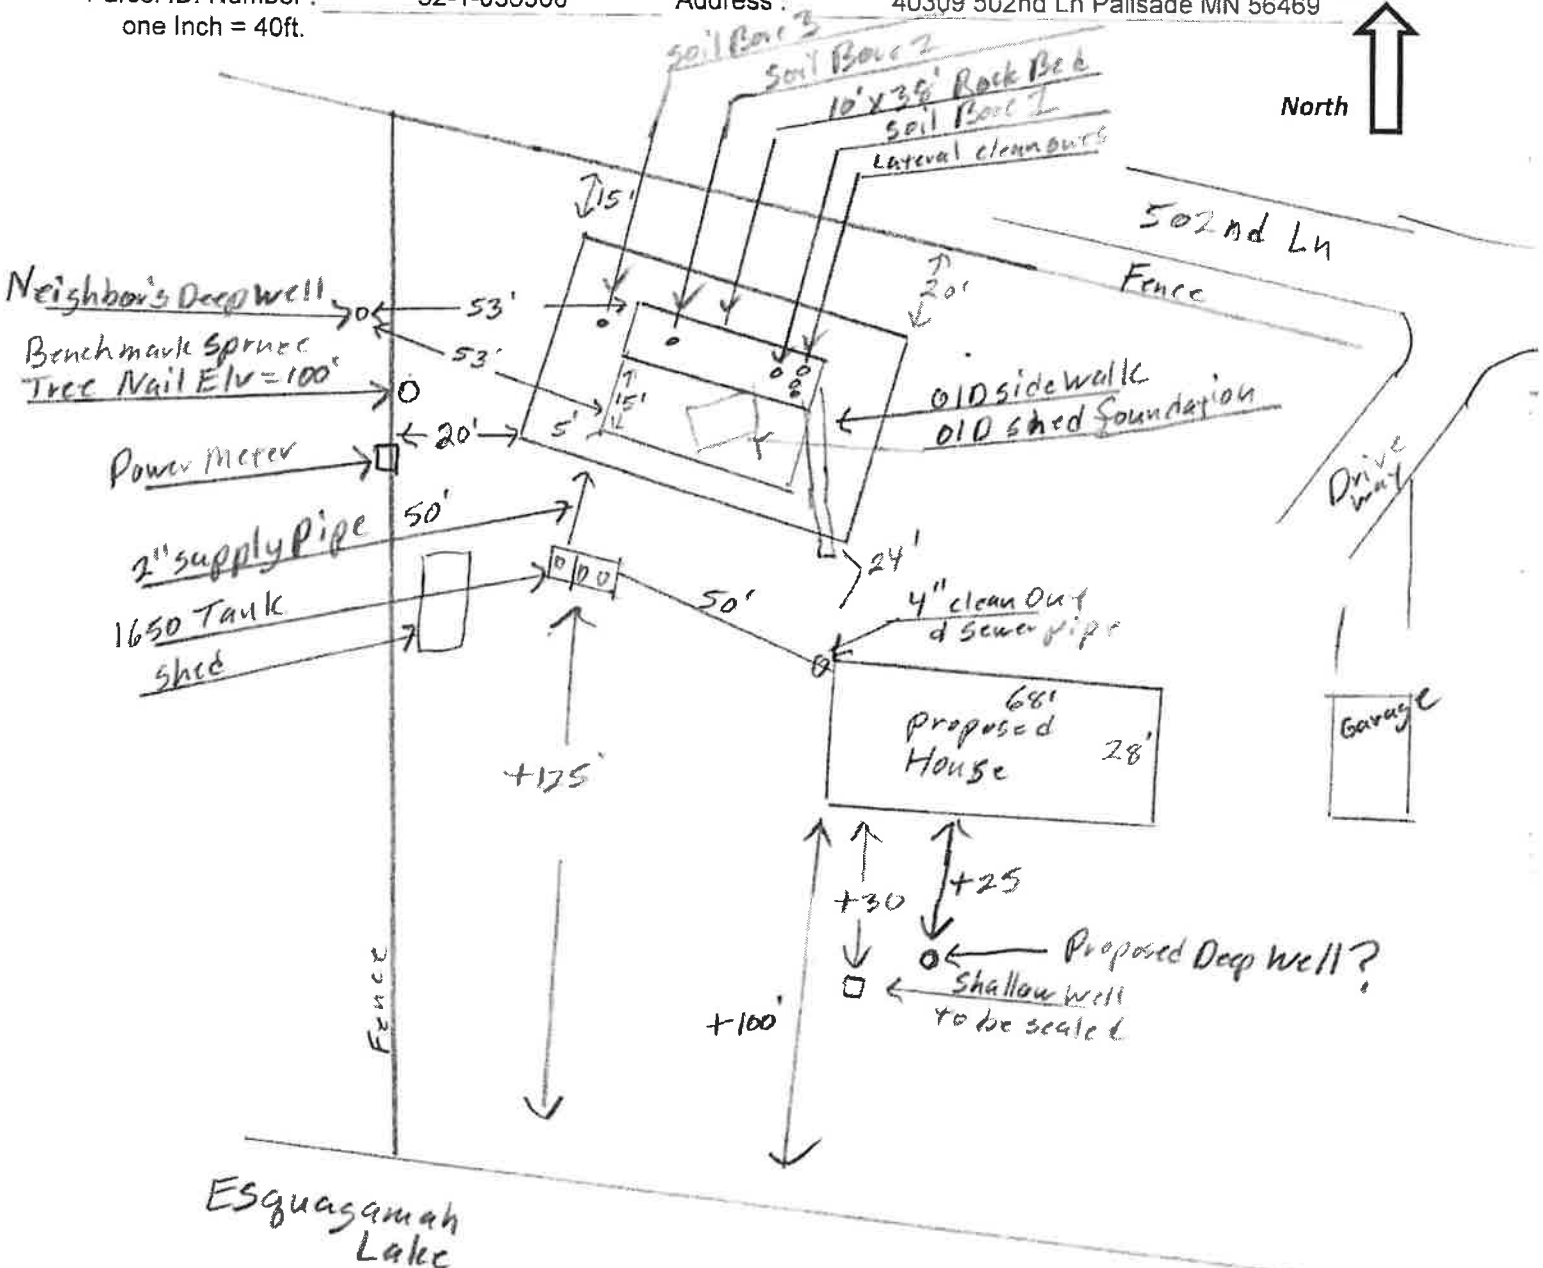 Parcel ID. Number : 32-1-050300 Address : 40309 502nd Ln Palisade MN 56469
one Inch = 40ft.
North
Soil Bore 3
Soil Bore 2
10' x 38' Rock Bed
Soil Bore 1
Lateral cleanouts
15'
502nd Ln
Fence
20'
Neighbor's Deep Well
53'
Benchmark Spruce
Tree Nail Elv = 100'
53'
Old sidewalk
Old shed foundation
15'
5'
20'
Power Meter
Drive
way
50'
2" supply Pipe
24'
1650 Tank
50'
4" clean Out
d sewer pipe
shed
68'
Proposed
House
28'
Garage
+125'
+30
+25
Proposed Deep Well?
Shallow well
to be sealed
+100'
Fence
Esquagamah
Lake